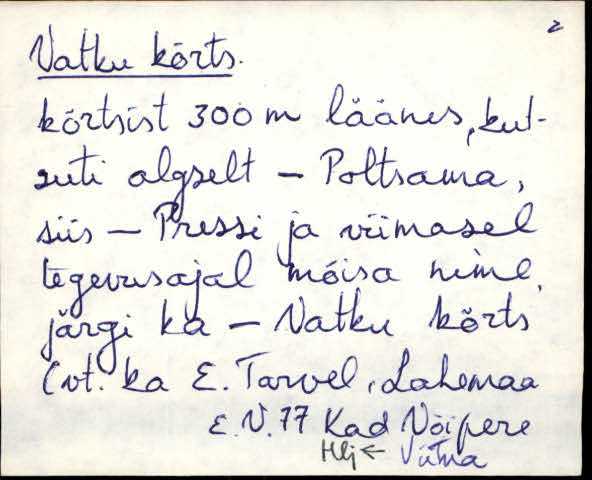 2
Vatku kõrts.
kõrtsist 300 m läänes, kut-
suti algselt – Poltsama,
siis – Pressi ja viimasel
tegevusajal mõisa nime
järgi ka – Vatku kõrts
(vt. ka E. Tarvel, Lahemaa
E.V. 77 Kad Võipere
Hlj ← Viitna